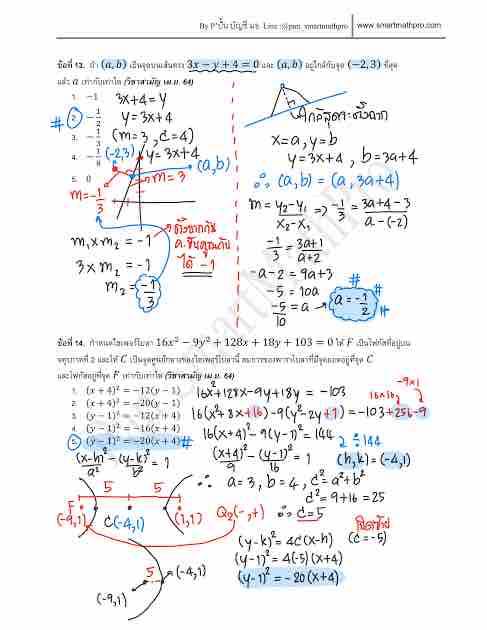 By P'ปั้น บัญชี มธ. Line :@pan_smartmathpro | www.smartmathpro.com
ข้อที่ 13. ถ้า (a, b) เป็นจุดบนเส้นตรง 3x − y + 4 = 0 และ (a, b) อยู่ใกล้กับจุด (−2, 3) ที่สุด
แล้ว a เท่ากับเท่าใด (วิชาสามัญ เม.ย. 64)
1. −1
2. −1/2
3. −1/3
4. −1/4
5. 0
#
3x+4 = y
y = 3x+4
(m=3, c=4)
(-2,3)
y = 3x+4
(a,b)
m = 3
m = -1/3
m₁ x m₂ = -1
3 x m₂ = -1
m₂ = -1/3
ตั้งฉากกัน
ได้ -1
ใกล้สุดจะตั้งฉาก
x = a, y = b
y = 3x+4, b = 3a+4
∴ (a,b) = (a, 3a+4)
m = y₂-y₁/x₂-x₁ => -1/3 = 3a+4-3/a-(-2)
-1/3 = 3a+1/a+2
-a-2 = 9a+3
-5 = 10a
-5/10 = a
a = -1/2
#
ข้อที่ 14. กำหนดไฮเพอร์โบลา 16x² − 9y² + 128x + 18y + 103 = 0 ให้ F เป็นโฟกัสที่อยู่บน
จตุภาคที่ 2 และให้ C เป็นจุดศูนย์กลางของไฮเพอร์โบลานี้ สมการของพาราโบลาที่มีจุดยอดอยู่ที่จุด C
และโฟกัสอยู่ที่จุด F เท่ากับเท่าใด (วิชาสามัญ เม.ย. 64)
1. (x + 4)² = −12(y − 1)
2. (x + 4)² = −20(y − 1)
3. (y − 1)² = −12(x + 4)
4. (y − 1)² = −16(x + 4)
5. (y − 1)² = −20(x + 4)
#
16x²+128x-9y+18y = -103
16x16
-9x1
16(x²+8x+16)-9(y²-2y+1) = -103+256-9
16(x+4)²-9(y-1)² = 144
÷144
(x+4)²/9 - (y-1)²/16 = 1
(h,k) = (-4,1)
(x-h)²/a² - (y-k)²/b² = 1
∴ a=3, b=4, c²=a²+b²
c² = 9+16 = 25
∴ c=5
5 5
F
(-9,1)
C(-4,1)
(1,1)
Q₂(-,+)
(y-k)² = 4c(x-h)
(c=-5)
(y-1)² = 4(-5)(x+4)
(y-1)² = -20(x+4)
5
(-4,1)
(-9,1)